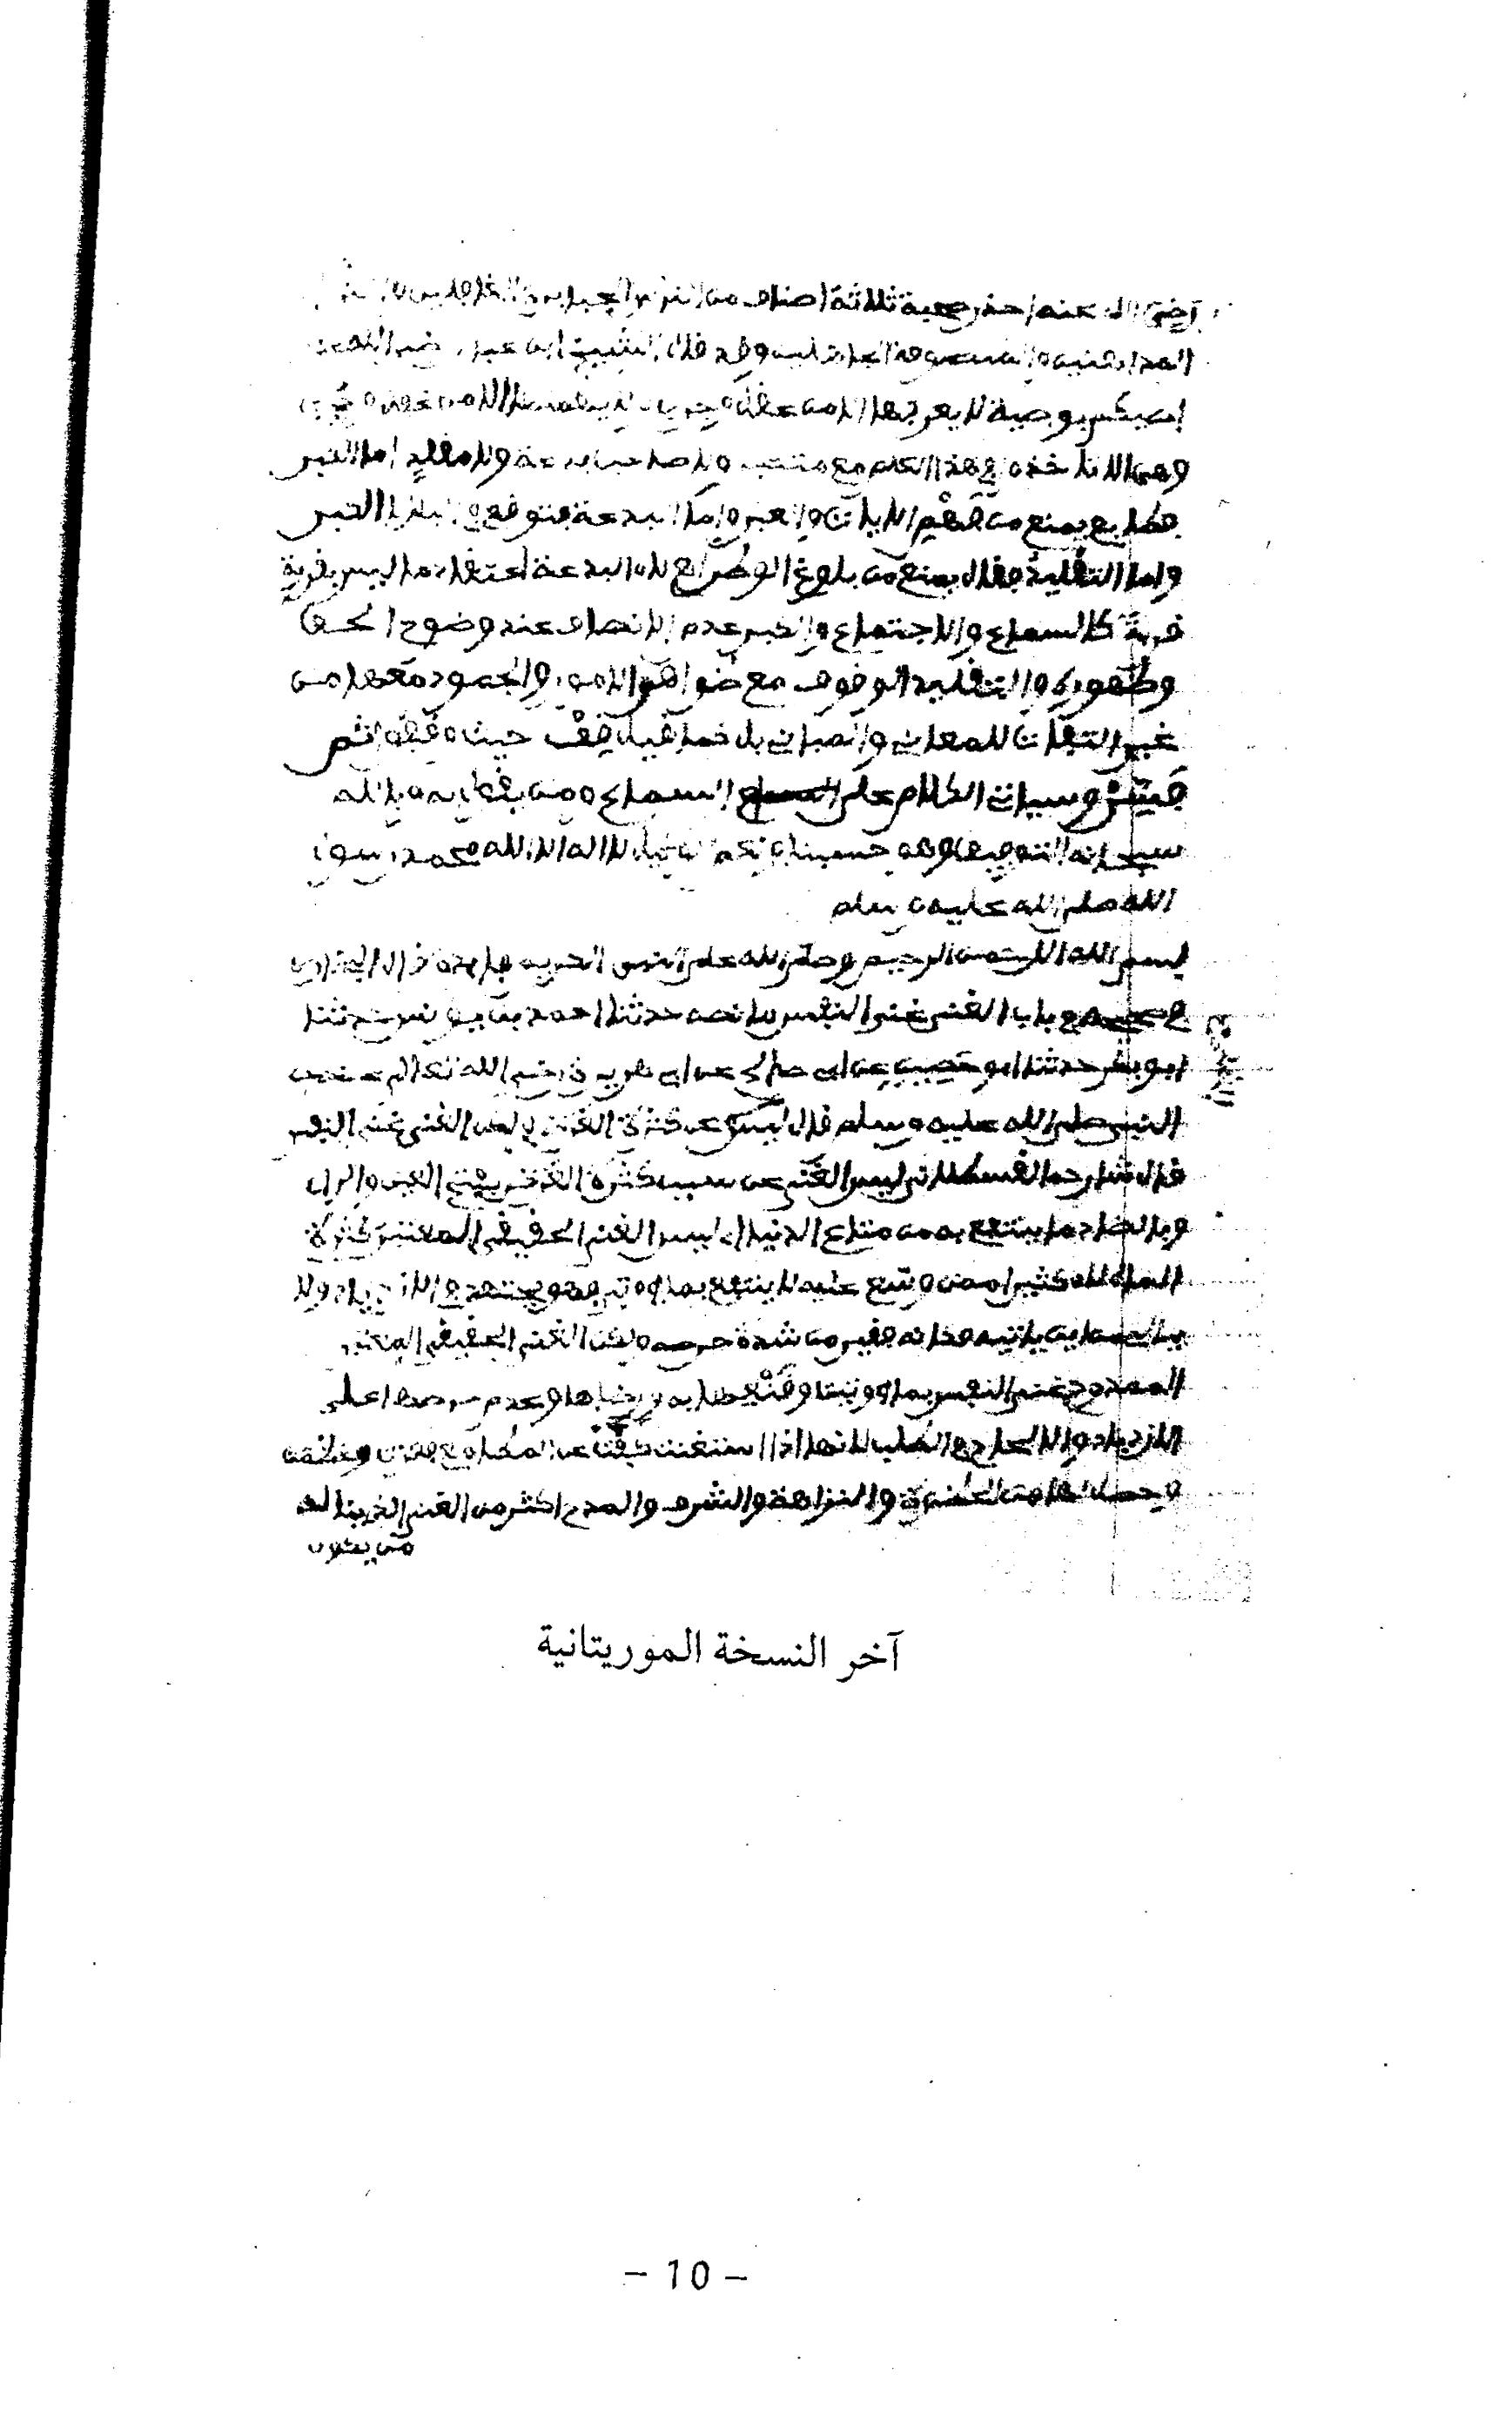 رضي الله عنه احذر صحبة ثلاثة اصناف من الناس الجبابرة الغافلين
المداهنين والمتصوفة الجاهلين وقد قال الشيخ ابن عباد رضي الله عنه
اوصيكم بوصية لا يعرفها الا من عقل وجرب ولا يهملها الا من غفل
وهي الا تاخذوا في هذا العلم مع متكبر ولا صاحب بدعة ولا مقلد اما الكبر
فطابع يمنع من فهم الايات والعبر واما البدعة فتوقع في البلايا الكبر
واما التقليد فعقال يمنع من بلوغ الوطر لان البدعة اعتقاد ما ليس بقربة
قربة كالسماع والاجتماع والكبر عدم الانصاف عند وضوح الحق
وظهوره والتقليد الوقوف مع ظواهر الامور والجمود معها من
غير التفات للمعاني والمباني بل كما قيل قف حيث وقفوا ثم
فسر وسياتي الكلام على السماع ومن يقول به وبالله
سبحانه التوفيق وهو حسبنا ونعم الوكيل لا اله الا الله محمد رسول
الله صلى الله عليه وسلم
بسم الله الرحمن الرحيم وصلى الله على النبي الكريم فايدة قال البخاري
في صحيحه باب الغنى غنى النفس ما نصه حدثنا احمد بن يونس حدثنا
ابو بكر حدثنا ابو حصين عن ابي صالح عن ابي هريرة رضي الله تعالى عنه عن
النبي صلى الله عليه وسلم قال ليس الغنى عن كثرة العرض ولكن الغنى غنى النفس
قال شارحه القسطلاني ليس الغنى عن سبب كثرة العرض بفتح العين والراء
وبالضاد ما ينتفع به من متاع الدنيا اي ليس الغنى الحقيقي المعتبر كثرة
المال لان كثيرا ممن وسع عليه لا ينتفع بما اوتي فهو يجتهد في الازدياد ولا
يبالي من اين ياتيه فكانه فقير من شدة حرصه ولكن الغنى الحقيقي المعتبر
الممدوح غنى النفس بما اوتيت وقنعها به ورضاها وعدم حرصها على
الازدياد والالحاح في الطلب لانها اذا استغنت كفت عن المطامع فعزت وعظمت
وحصل لها من الحظوة والنزاهة والشرف والمدح اكثر من الغنى الذي يناله
من يكون
آخر النسخة الموريتانية
- 10 -